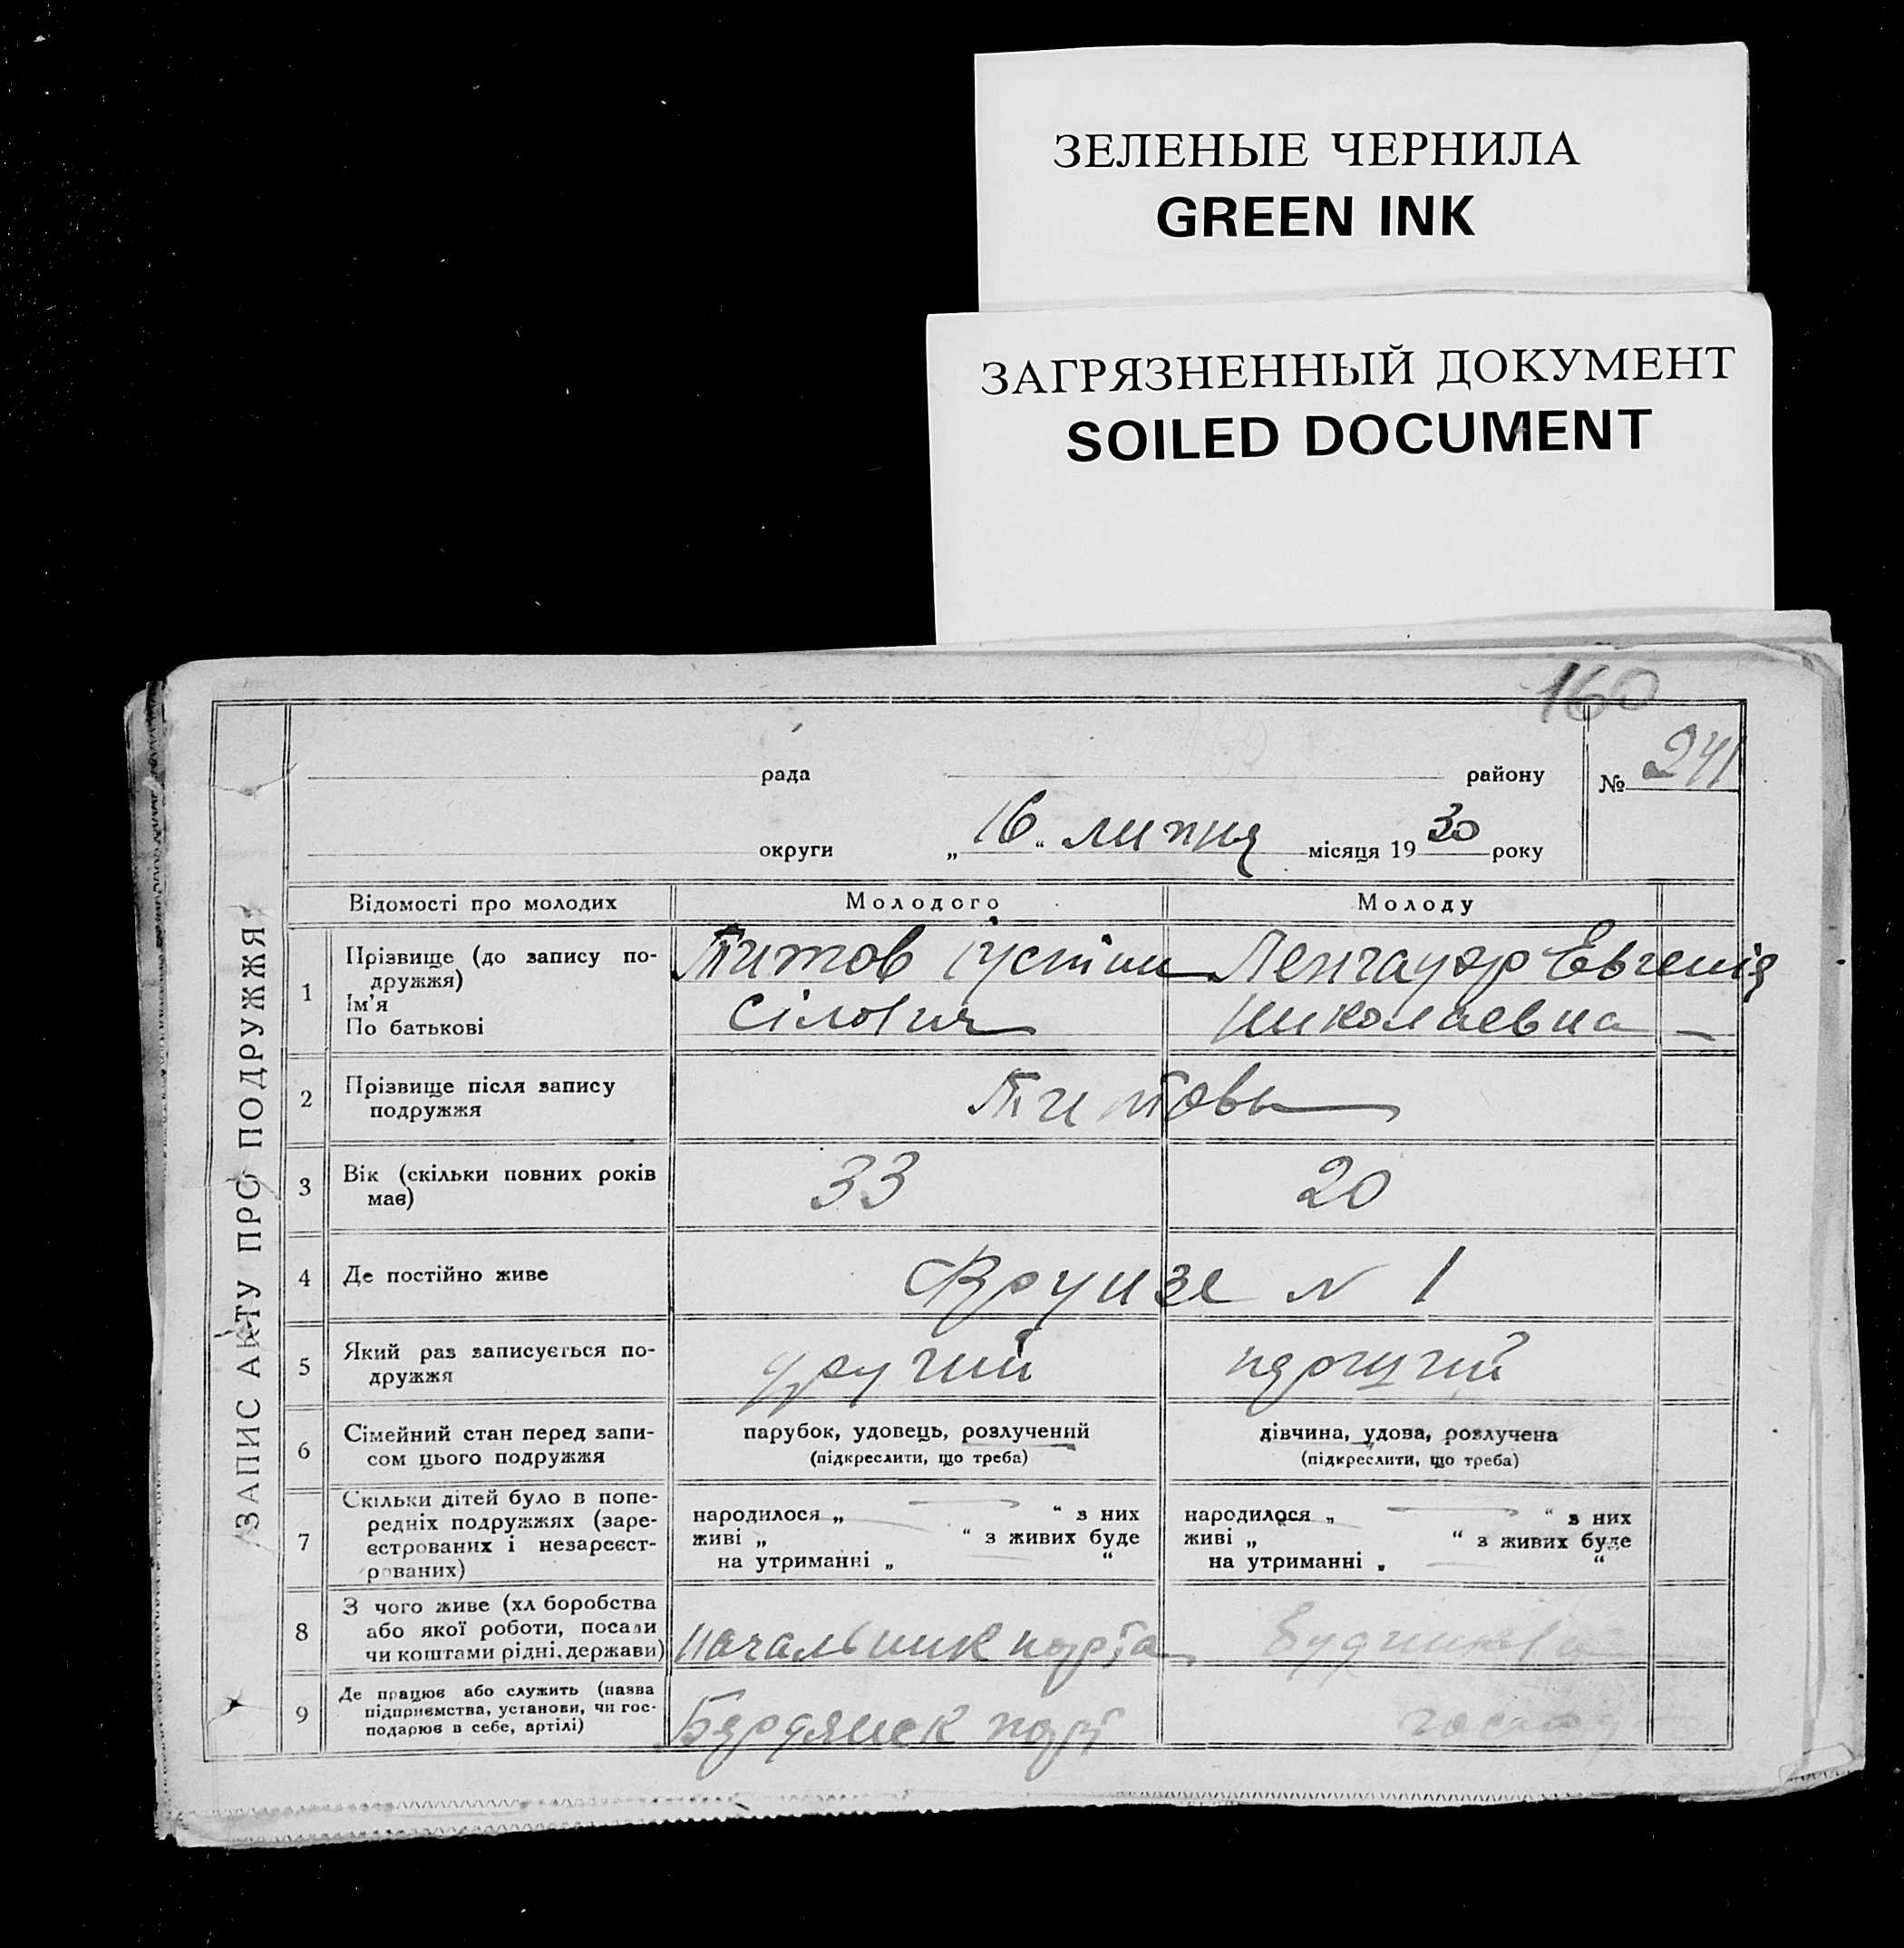 ЗЕЛЕНЫЕ ЧЕРНИЛА
GREEN INK
ЗАГРЯЗНЕННЫЙ ДОКУМЕНТ
SOILED DOCUMENT
160
рада району № 241
округи „16“ липня місяця 1930 року
ЗАПИС АКТУ ПРО ПОДРУЖЖЯ
Відомості про молодих Молодого Молоду
1 Прізвище (до запису по-
дружжя)
Ім'я
По батькові
Титов Іустин
Сілович
Ленгауэр Евгенія
Николаевна
2 Прізвище після запису
подружжя
Титовы
3 Вік (скільки повних років
має)
33 20
4 Де постійно живе Фрунзе N 1
5 Який раз записується по-
дружжя
другий перший
6 Сімейний стан перед запи-
сом цього подружжя
парубок, удовець, розлучений
(підкреслити, що треба)
дівчина, удова, розлучена
(підкреслити, що треба)
7 Скільки дітей було в попе-
редніх подружжях (заре-
єстрованих і незареєст-
рованих)
народилося „ — “ з них
живі „ “ з живих буде
на утриманні „ — “
народилося „ — “ з них
живі „ “ з живих буде
на утриманні „ — “
8 З чого живе (хл боробства
або якої роботи, посади
чи коштами рідні, держави)
начальник порта
9 Де працює або служить (назва
підприємства, установи, чи гос-
подарює в себе, артілі)
Бердянск порт